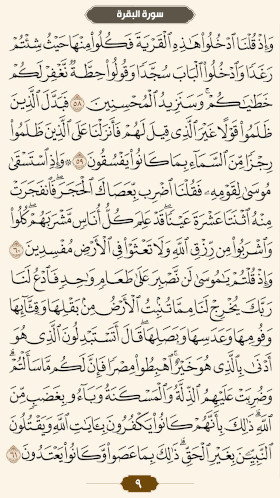 سورة البقرة
وَإِذْ قُلْنَا ٱدْخُلُوا۟ هَٰذِهِ ٱلْقَرْيَةَ فَكُلُوا۟ مِنْهَا حَيْثُ شِئْتُمْ
رَغَدًا وَٱدْخُلُوا۟ ٱلْبَابَ سُجَّدًا وَقُولُوا۟ حِطَّةٌ نَّغْفِرْ لَكُمْ
خَطَٰيَٰكُمْ ۚ وَسَنَزِيدُ ٱلْمُحْسِنِينَ ٥٨ فَبَدَّلَ ٱلَّذِينَ
ظَلَمُوا۟ قَوْلًا غَيْرَ ٱلَّذِى قِيلَ لَهُمْ فَأَنزَلْنَا عَلَى ٱلَّذِينَ ظَلَمُوا۟
رِجْزًا مِّنَ ٱلسَّمَآءِ بِمَا كَانُوا۟ يَفْسُقُونَ ٥٩ ۞ وَإِذِ ٱسْتَسْقَىٰ
مُوسَىٰ لِقَوْمِهِۦ فَقُلْنَا ٱضْرِب بِّعَصَاكَ ٱلْحَجَرَ ۖ فَٱنفَجَرَتْ
مِنْهُ ٱثْنَتَا عَشْرَةَ عَيْنًا ۖ قَدْ عَلِمَ كُلُّ أُنَاسٍ مَّشْرَبَهُمْ ۖ كُلُوا۟
وَٱشْرَبُوا۟ مِن رِّزْقِ ٱللَّهِ وَلَا تَعْثَوْا۟ فِى ٱلْأَرْضِ مُفْسِدِينَ ٦٠
وَإِذْ قُلْتُمْ يَٰمُوسَىٰ لَن نَّصْبِرَ عَلَىٰ طَعَامٍ وَٰحِدٍ فَٱدْعُ لَنَا
رَبَّكَ يُخْرِجْ لَنَا مِمَّا تُنۢبِتُ ٱلْأَرْضُ مِنۢ بَقْلِهَا وَقِثَّآئِهَا
وَفُومِهَا وَعَدَسِهَا وَبَصَلِهَا ۖ قَالَ أَتَسْتَبْدِلُونَ ٱلَّذِى هُوَ
أَدْنَىٰ بِٱلَّذِى هُوَ خَيْرٌ ۚ ٱهْبِطُوا۟ مِصْرًا فَإِنَّ لَكُم مَّا سَأَلْتُمْ ۗ
وَضُرِبَتْ عَلَيْهِمُ ٱلذِّلَّةُ وَٱلْمَسْكَنَةُ وَبَآءُو بِغَضَبٍ مِّنَ
ٱللَّهِ ۗ ذَٰلِكَ بِأَنَّهُمْ كَانُوا۟ يَكْفُرُونَ بِـَٔايَٰتِ ٱللَّهِ وَيَقْتُلُونَ
ٱلنَّبِيِّـۧنَ بِغَيْرِ ٱلْحَقِّ ۗ ذَٰلِكَ بِمَا عَصَوا۟ وَّكَانُوا۟ يَعْتَدُونَ ٦١
٩